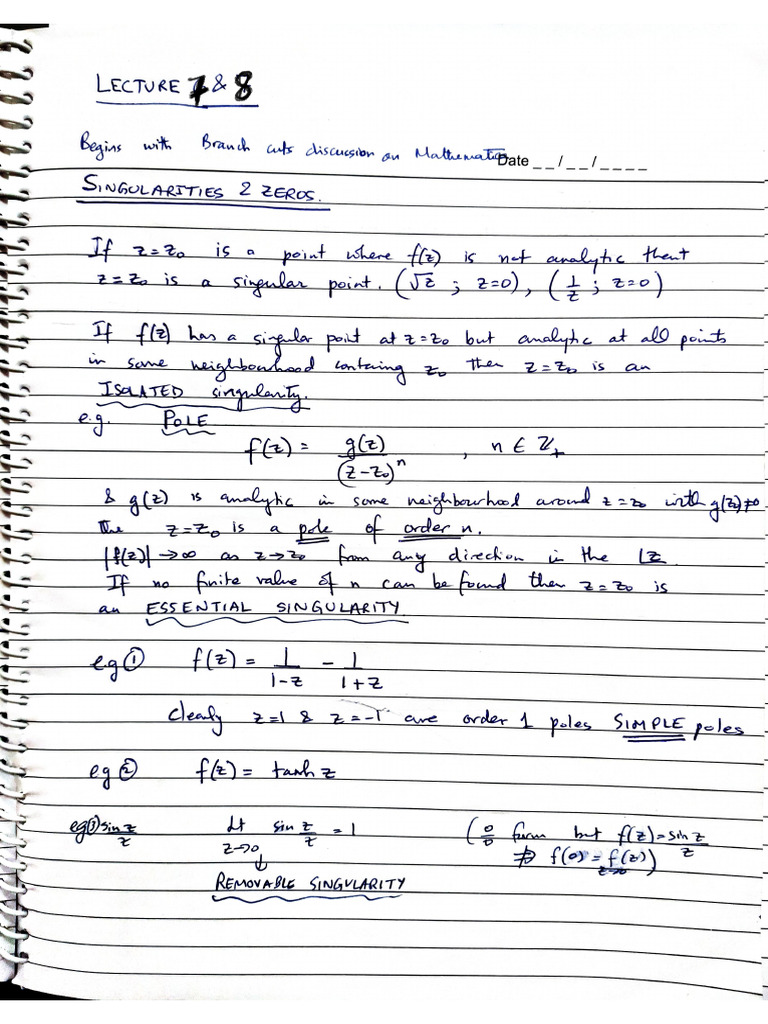 LECTURE 7 & 8
Begins with Branch cuts discussion on Mathematica
Date __/__/____
SINGULARITIES & ZEROS.
If z=z₀ is a point where f(z) is not analytic then
z=z₀ is a singular point. (√z ; z=0), (1/z ; z=0)
If f(z) has a singular point at z=z₀ but analytic at all points
in some neighbourhood containing z₀ then z=z₀ is an
ISOLATED singularity.
e.g. POLE
f(z) = g(z)/(z-z₀)ⁿ , n ∈ ℤ₊
& g(z) is analytic in some neighbourhood around z=z₀ with g(z₀)≠0
the z=z₀ is a pole of order n.
|f(z)|→∞ as z→z₀ from any direction in the z.
If no finite value of n can be found then z=z₀ is
an ESSENTIAL SINGULARITY.
eg① f(z) = 1/(1-z) - 1/(1+z)
Clearly z=1 & z=-1 are order 1 poles SIMPLE poles
eg② f(z) = tanh z
eg③ sin z/z Lt z→0 sin z/z = 1 (0/0 form but f(z)=sin z/z
⇏ f(0) = f(z)) z→0
↓
REMOVABLE SINGULARITY